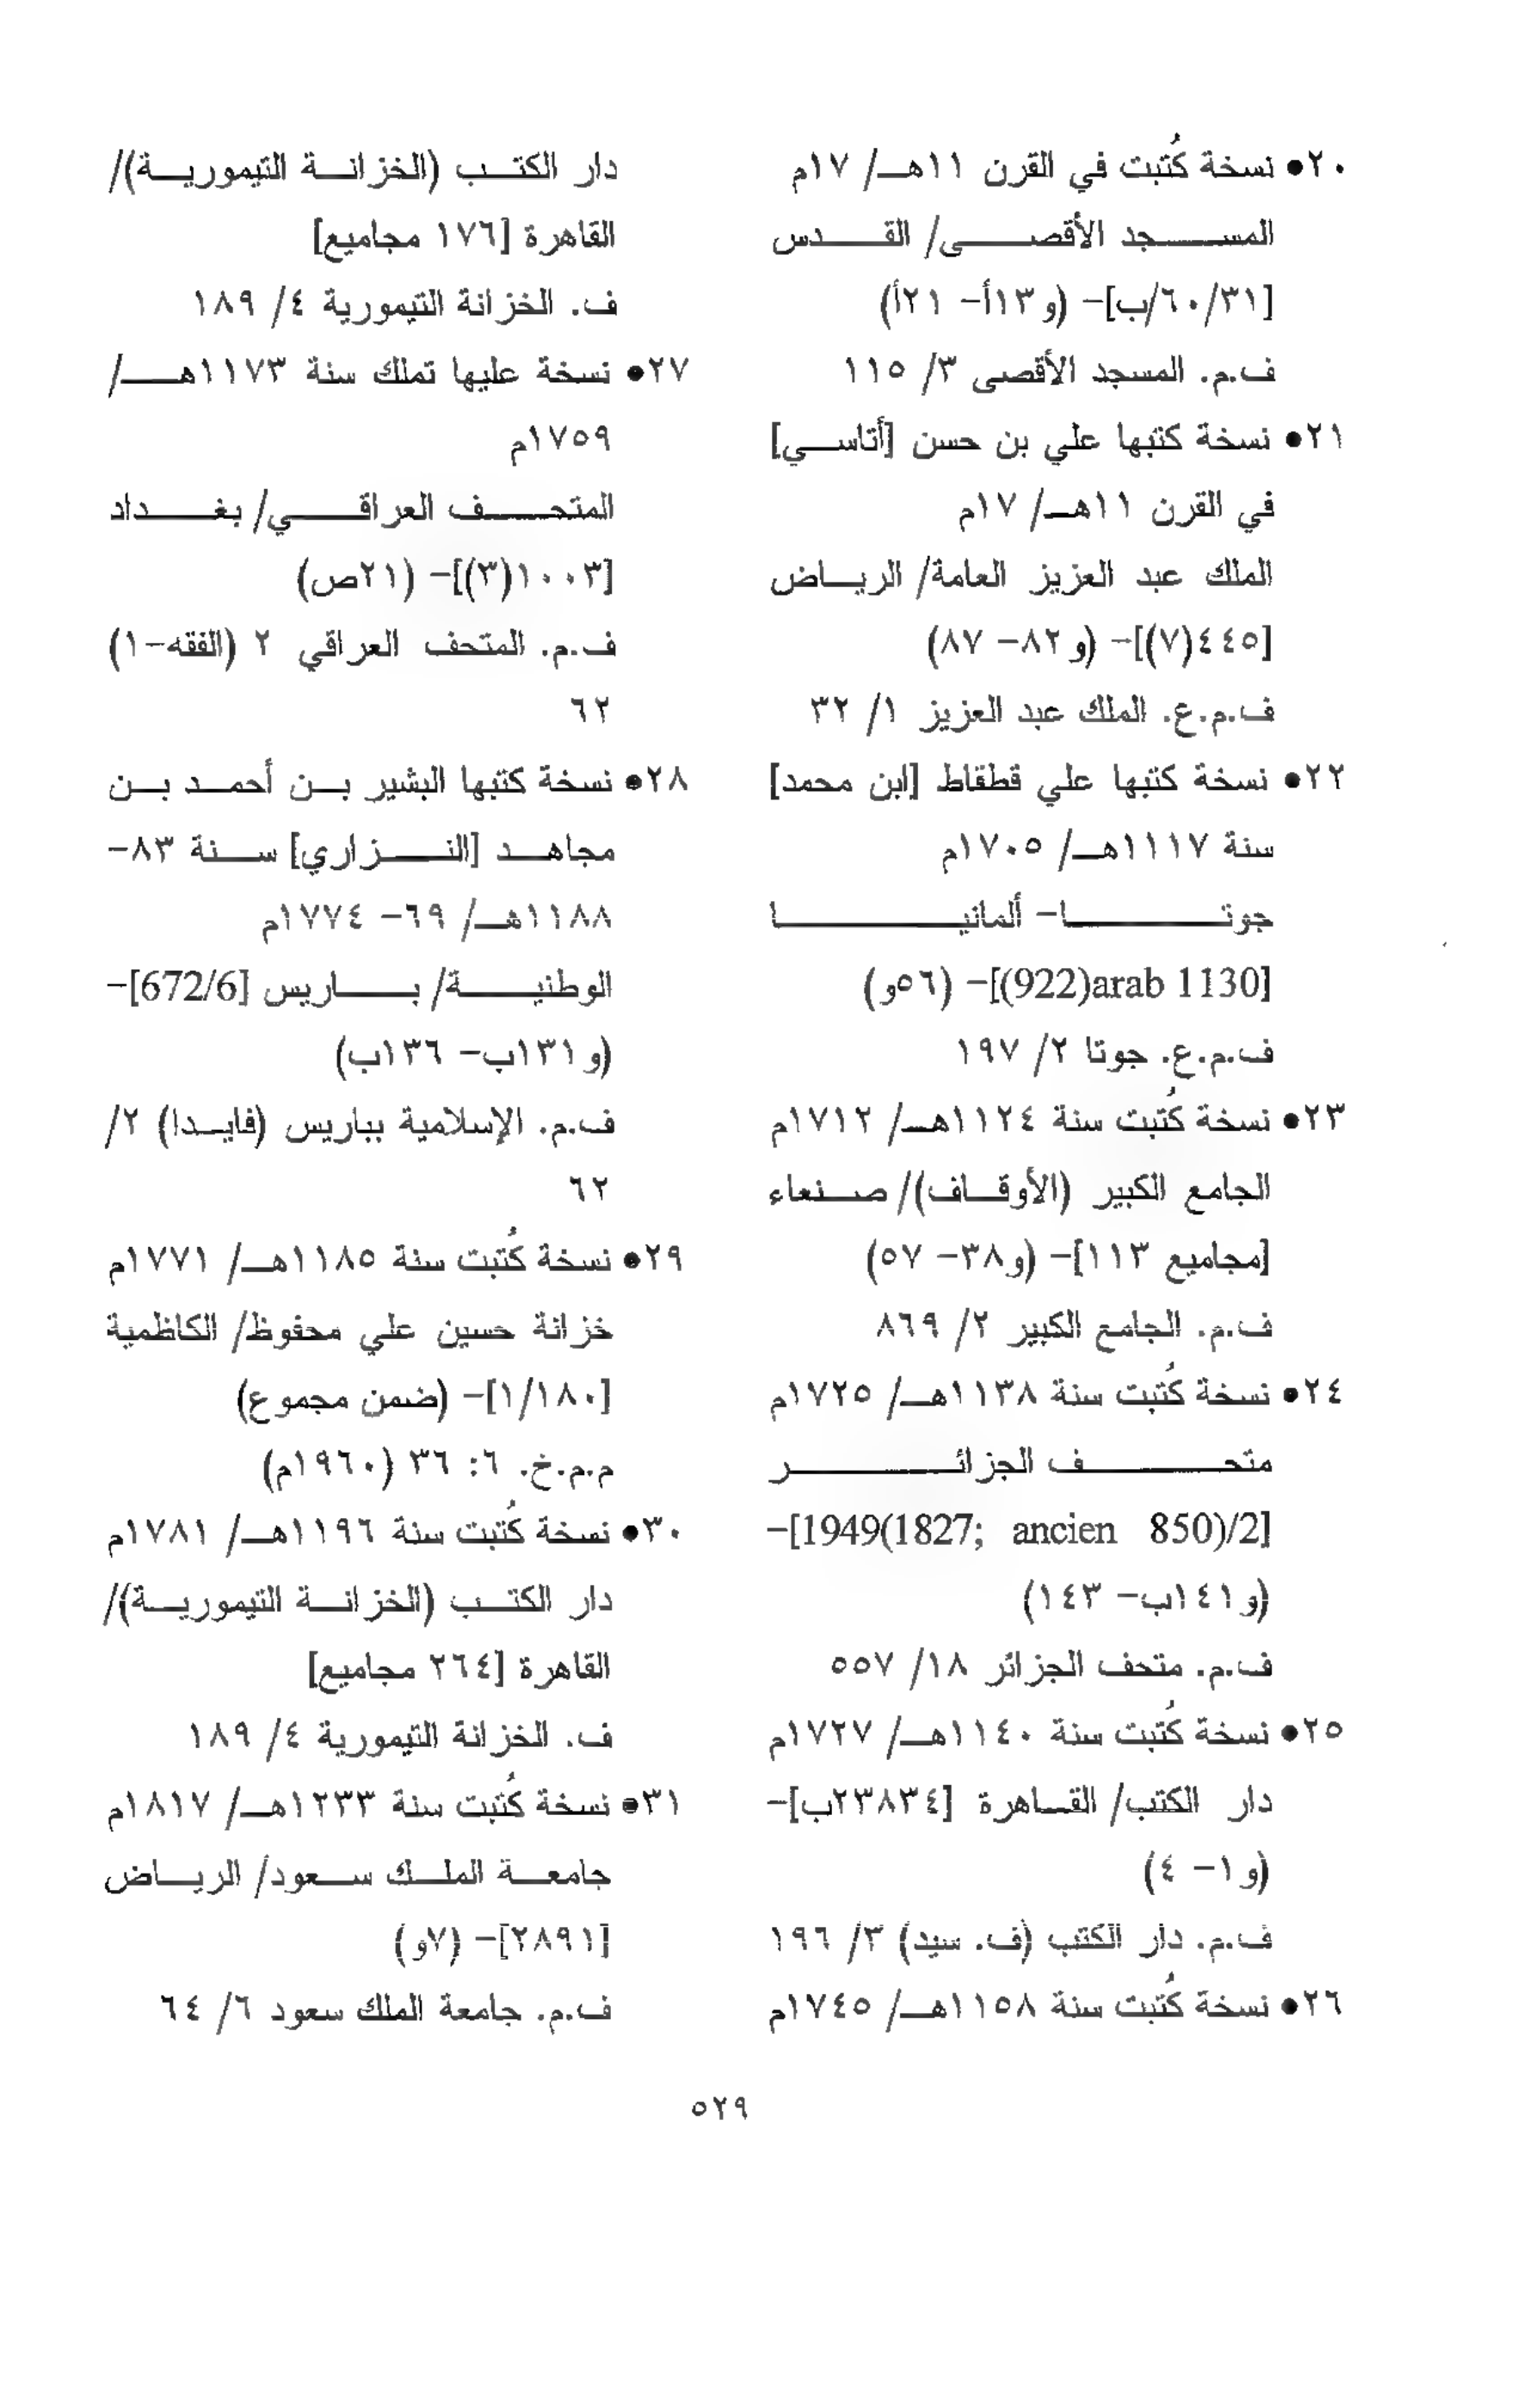 ٢٠● نسخة كُتبت في القرن ١١هـ/ ١٧م
المسجد الأقصى/ القدس
[٦٠/٣١/ب]- (و١٣أ- ٢١أ)
ف.م. المسجد الأقصى ٣/ ١١٥
٢١● نسخة كتبها علي بن حسن [أتاسي]
في القرن ١١هـ/ ١٧م
الملك عبد العزيز العامة/ الرياض
[٤٤٥(٧)]- (و٨٢- ٨٧)
ف.م.ع. الملك عبد العزيز ١/ ٣٢
٢٢● نسخة كتبها علي قطقاط [ابن محمد]
سنة ١١١٧هـ/ ١٧٠٥م
جوتا- ألمانيا
[arab 1130(922)]- (٥٦و)
ف.م.ع. جوتا ٢/ ١٩٧
٢٣● نسخة كُتبت سنة ١١٢٤هـ/ ١٧١٢م
الجامع الكبير (الأوقاف)/ صنعاء
[مجاميع ١١٣]- (و٣٨- ٥٧)
ف.م. الجامع الكبير ٢/ ٨٦٩
٢٤● نسخة كُتبت سنة ١١٣٨هـ/ ١٧٢٥م
متحف الجزائر
[1949(1827; ancien 850)/2]-
(و١٤١ب- ١٤٣)
ف.م. متحف الجزائر ١٨/ ٥٥٧
٢٥● نسخة كُتبت سنة ١١٤٠هـ/ ١٧٢٧م
دار الكتب/ القاهرة [٢٣٨٣٤ب]-
(و١- ٤)
ف.م. دار الكتب (ف. سيد) ٣/ ١٩٦
٢٦● نسخة كُتبت سنة ١١٥٨هـ/ ١٧٤٥م
دار الكتب (الخزانة التيمورية)/
القاهرة [١٧٦ مجاميع]
ف. الخزانة التيمورية ٤/ ١٨٩
٢٧● نسخة عليها تملك سنة ١١٧٣هـ/
١٧٥٩م
المتحف العراقي/ بغداد
[١٠٠٣(٣)]- (٢١ص)
ف.م. المتحف العراقي ٢ (الفقه-١)
٦٢
٢٨● نسخة كتبها البشير بن أحمد بن
مجاهد [النزاري] سنة ٨٣-
١١٨٨هـ/ ٦٩- ١٧٧٤م
الوطنية/ باريس [672/6]-
(و١٣١ب- ١٣٦ب)
ف.م. الإسلامية بباريس (فايدا) ٢/
٦٢
٢٩● نسخة كُتبت سنة ١١٨٥هـ/ ١٧٧١م
خزانة حسين علي محفوظ/ الكاظمية
[١/١٨٠]- (ضمن مجموع)
م.م.خ. ٦: ٣٦ (١٩٦٠م)
٣٠● نسخة كُتبت سنة ١١٩٦هـ/ ١٧٨١م
دار الكتب (الخزانة التيمورية)/
القاهرة [٢٦٤ مجاميع]
ف. الخزانة التيمورية ٤/ ١٨٩
٣١● نسخة كُتبت سنة ١٢٣٣هـ/ ١٨١٧م
جامعة الملك سعود/ الرياض
[٢٨٩١]- (٧و)
ف.م. جامعة الملك سعود ٦/ ٦٤
٥٢٩